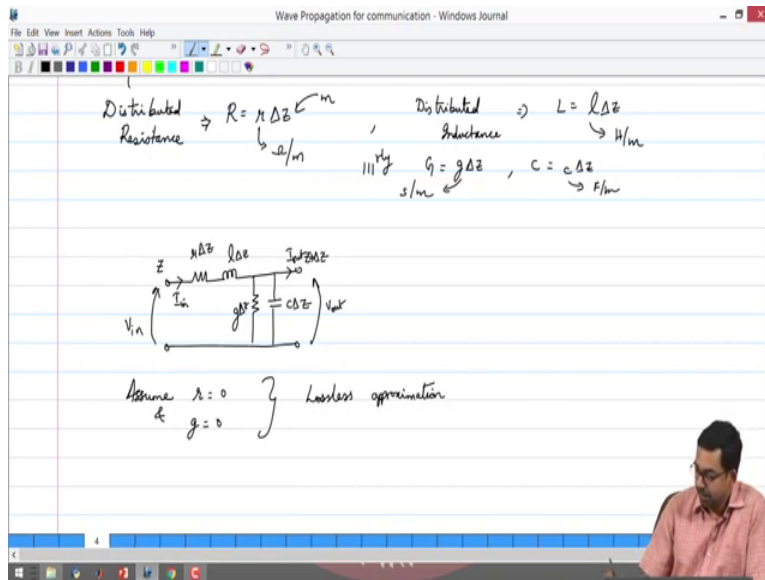 Wave Propagation for communication - Windows Journal
File Edit View Insert Actions Tools Help
B I
Distributed Resistance ⇒ R = r Δz ← m
↳ Ω/m
, Distributed Inductance ⇒ L = lΔz
↳ H/m
|||rly G = gΔz , C = cΔz
S/m ↙ ↳ F/m
rΔz lΔz
z Iout z+Δz
Iin
Vin gΔz cΔz Vout
Assume r = 0 } Lossless aproximation
& g = 0
4